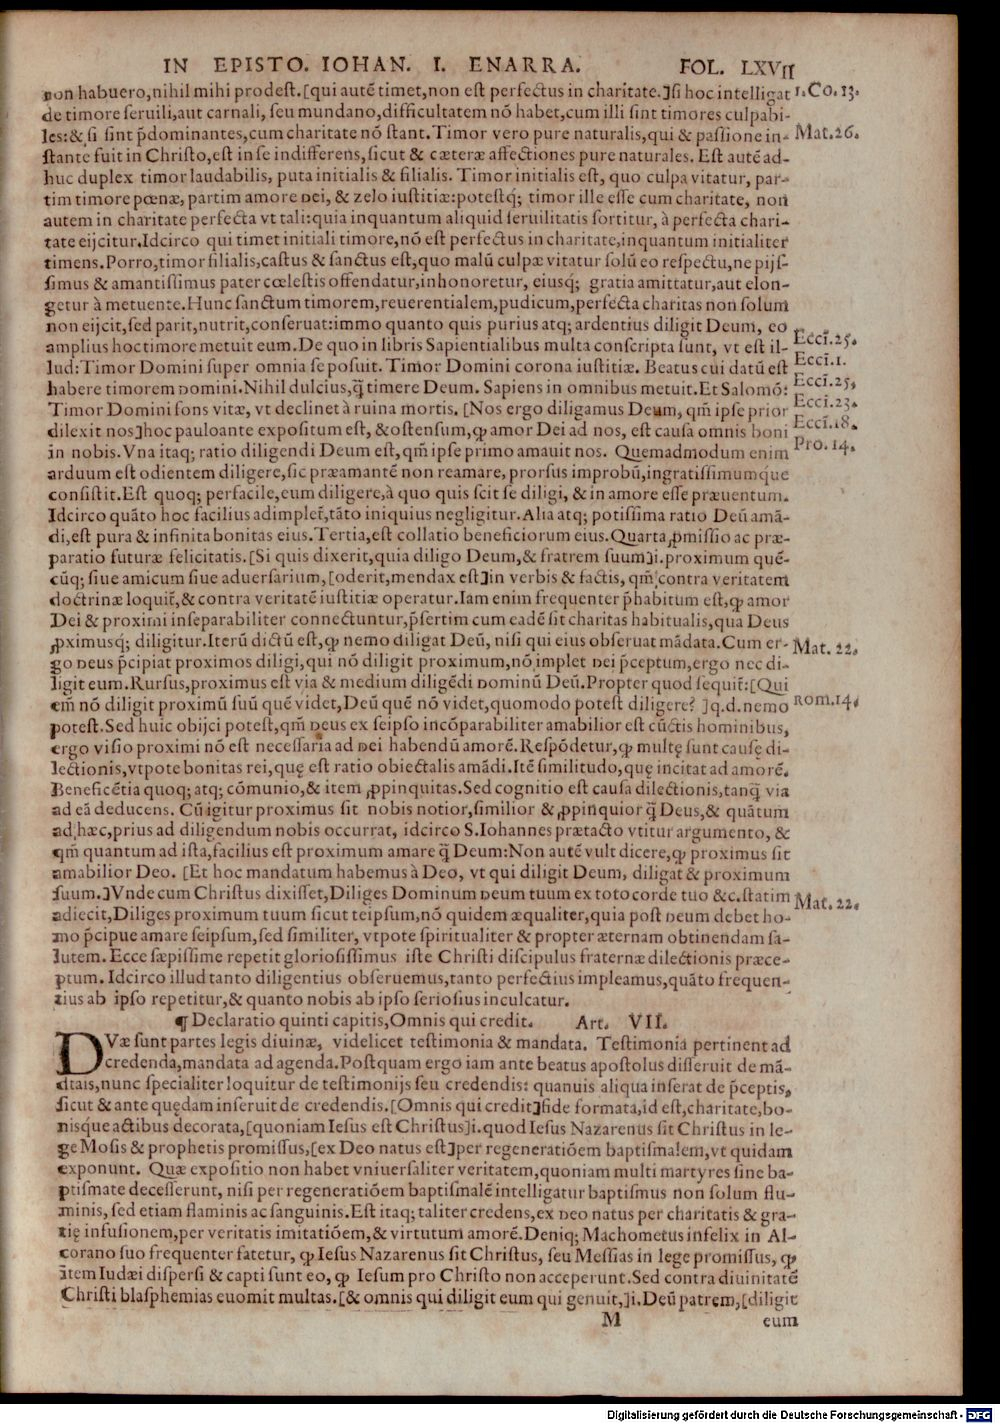 IN EPISTO. IOHAN. I. ENARRA. FOL. LXVII
non habuero,nihil mihi prodest.[qui autē timet,non est perfectus in charitate.]si hoc intelligat 1.Co.13.
de timore seruili,aut carnali, seu mundano,difficultatem nō habet,cum illi sint timores culpabi-
les:& si sint p̄dominantes,cum charitate nō stant. Timor vero pure naturalis,qui & passione in- Mat.26.
stante fuit in Christo,est in se indifferens,sicut & cæteræ affectiones pure naturales. Est autē ad-
huc duplex timor laudabilis, puta initialis & filialis. Timor initialis est, quo culpa vitatur, par-
tim timore pœnæ, partim amore Dei, & zelo iustitiæ:potestq; timor ille esse cum charitate, non
autem in charitate perfecta vt tali:quia inquantum aliquid seruilitatis sortitur, à perfecta chari-
tate eijcitur.Idcirco qui timet initiali timore,nō est perfectus in charitate,inquantum initialiter
timens.Porro,timor filialis,castus & sanctus est,quo malū culpæ vitatur solū eo respectu,ne pijs-
simus & amantissimus pater cœlestis offendatur,inhonoretur, eiusq; gratia amittatur,aut elon-
getur à metuente.Hunc sanctum timorem,reuerentialem,pudicum,perfecta charitas non solum
non eijcit,sed parit,nutrit,conseruat:immo quanto quis purius atq; ardentius diligit Deum, eo
amplius hoc timore metuit eum.De quo in libris Sapientialibus multa conscripta sunt, vt est il- Eccī.25.
lud:Timor Domini super omnia se posuit. Timor Domini corona iustitiæ. Beatus cui datū est Eccī.1.
habere timorem Domini.Nihil dulcius,q̄ timere Deum. Sapiens in omnibus metuit.Et Salomō: Eccī.25,
Timor Domini fons vitæ, vt declinet à ruina mortis. [Nos ergo diligamus Deum, qm̄ ipse prior Eccī.23.
dilexit nos]hoc pauloante expositum est, &ostensum,ꝙ amor Dei ad nos, est causa omnis boni Eccī.18.
in nobis.Vna itaq; ratio diligendi Deum est,qm̄ ipse primo amauit nos. Quemadmodum enim Pro.14.
arduum est odientem diligere,sic præamantē non reamare, prorsus improbū,ingratissimumque
consistit.Est quoq; perfacile,eum diligere,à quo quis scit se diligi, & in amore esse præuentum.
Idcirco quāto hoc facilius adimplet̄,tāto iniquius negligitur.Alia atq; potissima ratio Deū amā-
di,est pura & infinita bonitas eius.Tertia,est collatio beneficiorum eius.Quarta,ꝓmissio ac præ-
paratio futuræ felicitatis.[Si quis dixerit,quia diligo Deum,& fratrem suum]i.proximum quē-
cūq; siue amicum siue aduersarium,[oderit,mendax est]in verbis & factis, qm̄ contra veritatem
doctrinæ loquit̄,& contra veritatē iustitiæ operatur.Iam enim frequenter p̄habitum est,ꝙ amor
Dei & proximi inseparabiliter connectuntur,p̄sertim cum eadē sit charitas habitualis,qua Deus
ꝓximusq; diligitur.Iterū dictū est,ꝙ nemo diligat Deū, nisi qui eius obseruat mādata.Cum er- Mat. 22.
go Deus p̄cipiat proximos diligi,qui nō diligit proximum,nō implet Dei p̄ceptum,ergo nec di-
ligit eum.Rursus,proximus est via & medium diligēdi Dominū Deū.Propter quod sequit̄:[Qui
em̄ nō diligit proximū suū quē videt,Deū quē nō videt,quomodo potest diligere? ]q.d.nemo Rom.14.
potest.Sed huic obijci potest,qm̄ Deus ex seipso incōparabiliter amabilior est cūctis hominibus,
ergo visio proximi nō est necessaria ad Dei habendū amorē.Respōdetur,ꝙ multę sunt causę di-
lectionis,vtpote bonitas rei,quę est ratio obiectalis amādi.Itē similitudo,quę incitat ad amorē.
Beneficētia quoq; atq; cōmunio,& item ꝓpinquitas.Sed cognitio est causa dilectionis,tanq̄ via
ad eā deducens. Cū igitur proximus sit nobis notior,similior & ꝓpinquior q̄ Deus,& quātum
ad hæc,prius ad diligendum nobis occurrat, idcirco S.Iohannes prætacto vtitur argumento, &
qm̄ quantum ad ista,facilius est proximum amare q̄ Deum:Non autē vult dicere,ꝙ proximus sit
amabilior Deo. [Et hoc mandatum habemus à Deo, vt qui diligit Deum, diligat & proximum
suum.]Vnde cum Christus dixisset,Diliges Dominum Deum tuum ex toto corde tuo &c.statim Mat. 22.
adiecit,Diliges proximum tuum sicut teipsum,nō quidem æqualiter,quia post Deum debet ho-
mo p̄cipue amare seipsum,sed similiter, vtpote spiritualiter & propter æternam obtinendam sa-
lutem. Ecce sæpissime repetit gloriosissimus iste Christi discipulus fraternæ dilectionis præce-
ptum. Idcirco illud tanto diligentius obseruemus,tanto perfectius impleamus,quāto frequen-
tius ab ipso repetitur,& quanto nobis ab ipso seriosius inculcatur.
¶ Declaratio quinti capitis,Omnis qui credit. Art. VII.
DVæ sunt partes legis diuinæ, videlicet testimonia & mandata. Testimonia pertinent ad
credenda,mandata ad agenda.Postquam ergo iam ante beatus apostolus disseruit de mā-
datis,nunc specialiter loquitur de testimonijs seu credendis: quanuis aliqua inserat de p̄ceptis,
sicut & ante quędam inseruit de credendis.[Omnis qui credit]fide formata,id est,charitate,bo-
nisque actibus decorata,[quoniam Iesus est Christus]i.quod Iesus Nazarenus sit Christus in le-
ge Mosis & prophetis promissus,[ex Deo natus est]per regeneratiōem baptismalem,vt quidam
exponunt. Quæ expositio non habet vniuersaliter veritatem,quoniam multi martyres sine ba-
ptismate decesserunt, nisi per regeneratiōem baptismalē intelligatur baptismus non solum flu-
minis, sed etiam flaminis ac sanguinis.Est itaq; taliter credens,ex Deo natus per charitatis & gra-
tię infusionem,per veritatis imitatiōem,& virtutum amorē.Deniq; Machometus infelix in Al-
corano suo frequenter fatetur, ꝙ Iesus Nazarenus sit Christus, seu Messias in lege promissus, ꝙ
item Iudæi dispersi & capti sunt eo, ꝙ Iesum pro Christo non acceperunt.Sed contra diuinitatē
Christi blasphemias euomit multas.[& omnis qui diligit eum qui genuit,]i.Deū patrem,[diligit
M eum
Digitalisierung gefördert durch die Deutsche Forschungsgemeinschaft - DFG